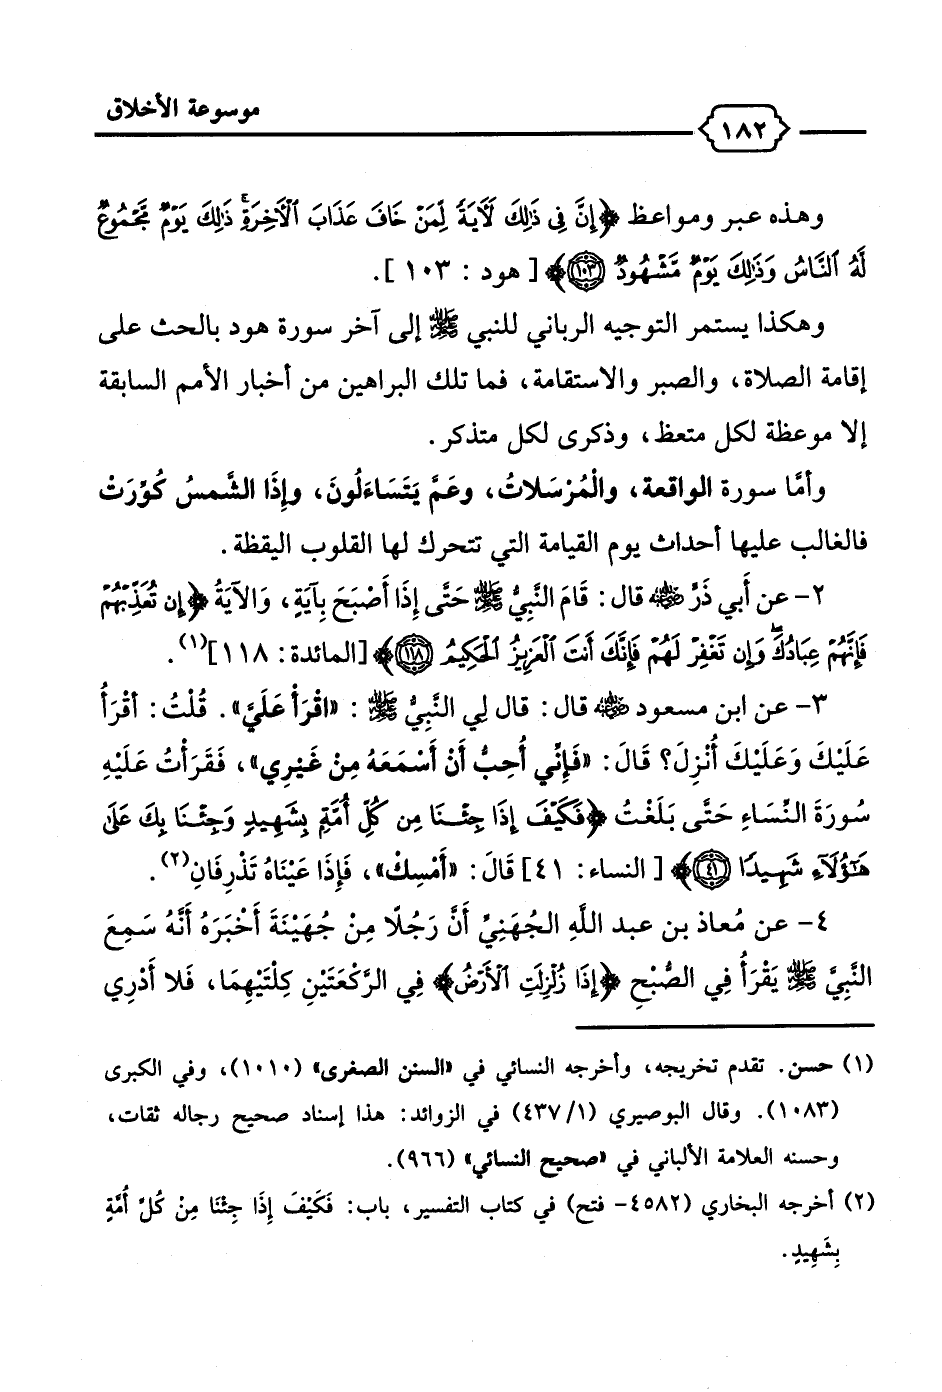 موسوعة الأخلاق
١٨٢
وهذه عبر ومواعظ ﴿إِنَّ فِي ذَٰلِكَ لَآيَةً لِّمَنْ خَافَ عَذَابَ الْآخِرَةِ ۚ ذَٰلِكَ يَوْمٌ مَّجْمُوعٌ
لَّهُ النَّاسُ وَذَٰلِكَ يَوْمٌ مَّشْهُودٌ ١٠٣﴾ [هود : ١٠٣ ].
وهكذا يستمر التوجيه الرباني للنبي ﷺ إلى آخر سورة هود بالحث على
إقامة الصلاة، والصبر والاستقامة، فما تلك البراهين من أخبار الأمم السابقة
إلا موعظة لكل متعظ، وذكرى لكل متذكر.
وأمَّا سورة الواقعة، والْمُرْسَلاتُ، وعَمَّ يَتَسَاءَلُونَ، وإِذَا الشَّمسُ كُوِّرَتْ
فالغالب عليها أحداث يوم القيامة التي تتحرك لها القلوب اليقظة.
٢- عن أَبي ذَرٍّ رضي الله عنه قال: قَامَ النَّبِيُّ ﷺ حَتَّى إِذَا أَصْبَحَ بِآيَةٍ، وَالآيَةُ ﴿إِن تُعَذِّبْهُمْ
فَإِنَّهُمْ عِبَادُكَ ۖ وَإِن تَغْفِرْ لَهُمْ فَإِنَّكَ أَنتَ الْعَزِيزُ الْحَكِيمُ ١١٨﴾ [المائدة: ١١٨](١).
٣- عن ابن مسعود رضي الله عنه قال: قال لِي النَّبِيُّ ﷺ : «اقْرَأْ عَلَيَّ». قُلْتُ: أَقْرَأُ
عَلَيْكَ وَعَلَيْكَ أُنْزِلَ؟ قَالَ: «فَإِنِّي أُحِبُّ أَنْ أَسْمَعَهُ مِنْ غَيْرِي»، فَقَرَأْتُ عَلَيْهِ
سُورَةَ النِّسَاءِ حَتَّى بَلَغْتُ ﴿فَكَيْفَ إِذَا جِئْنَا مِن كُلِّ أُمَّةٍ بِشَهِيدٍ وَجِئْنَا بِكَ عَلَىٰ
هَٰؤُلَاءِ شَهِيدًا ٤١﴾ [ النساء: ٤١] قَالَ: «أَمْسِكْ»، فَإِذَا عَيْنَاهُ تَذْرِفَانِ(٢).
٤- عن مُعاذ بن عبد اللَّهِ الجُهَنِيِّ أَنَّ رَجُلًا مِنْ جُهَيْنَةَ أَخْبَرَهُ أَنَّهُ سَمِعَ
النَّبِيَّ ﷺ يَقْرَأُ فِي الصُّبْحِ ﴿إِذَا زُلْزِلَتِ الْأَرْضُ﴾ فِي الرَّكْعَتَيْنِ كِلْتَيْهِمَا، فَلا أَدْرِي
(١) حسن. تقدم تخريجه، وأخرجه النسائي في «السنن الصغرى» (١٠١٠)، وفي الكبرى
(١٠٨٣). وقال البوصيري (١/ ٤٣٧) في الزوائد: هذا إسناد صحيح رجاله ثقات،
وحسنه العلامة الألباني في «صحيح النسائي» (٩٦٦).
(٢) أخرجه البخاري (٤٥٨٢- فتح) في كتاب التفسير، باب: فَكَيْفَ إِذَا جِئْنَا مِنْ كُلِّ أُمَّةٍ
بِشَهِيدٍ.